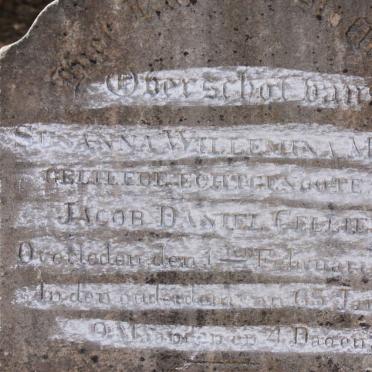 Overschot van
SUSANNA WILLEMINA M
GELIEFDE ECHTGENOOTE
JACOB DANIEL CELLIE
Overleden den 1 Februar
In den ouderdom van 65 Ja
9 Maanden en 4 Dagen